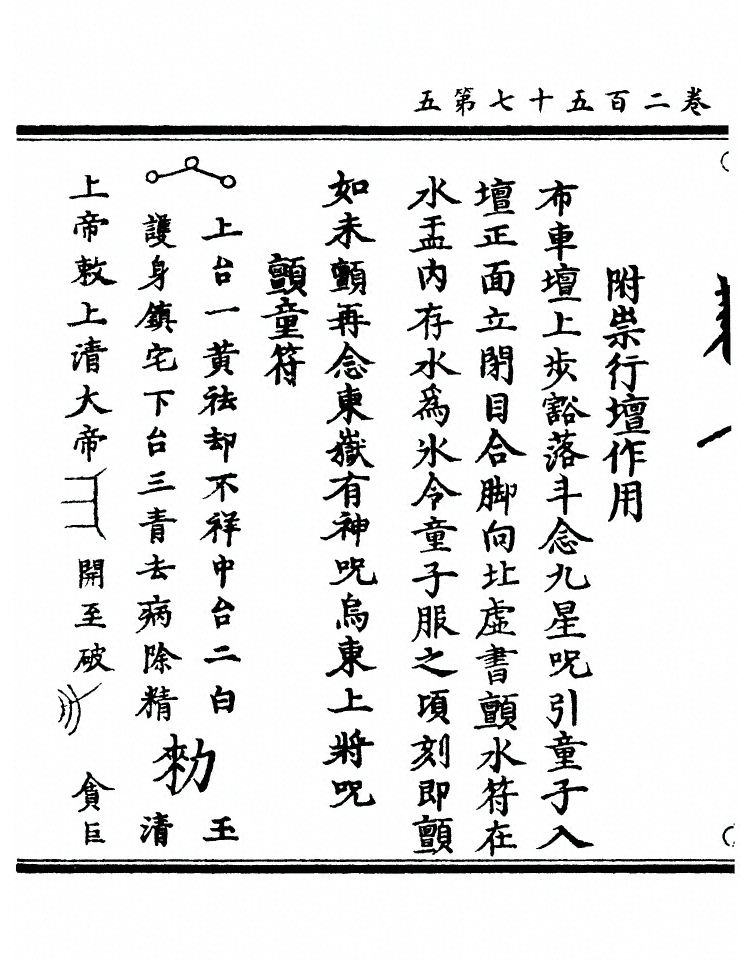 卷二百五十七第五
附祟行壇作用
布車壇上步豁落斗念九星呪引童子入
壇正面立閉目合脚向北虛書顫水符在
水盂内存水爲氷令童子服之頃刻即顫
如未顫再念東嶽有神呪烏東上將呪
顫童符
上台一黃祛却不祥中台二白
護身鎮宅下台三青去病除精
勑
玉清
上帝敕上清大帝開至破貪巨